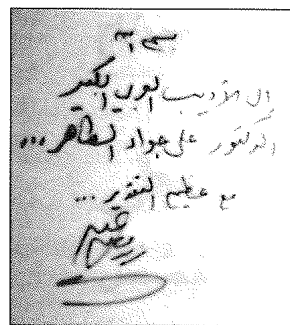 إلى الأديب العربي الكبير
الدكتور علي جواد الطاهر...
مع عظيم التقدير...